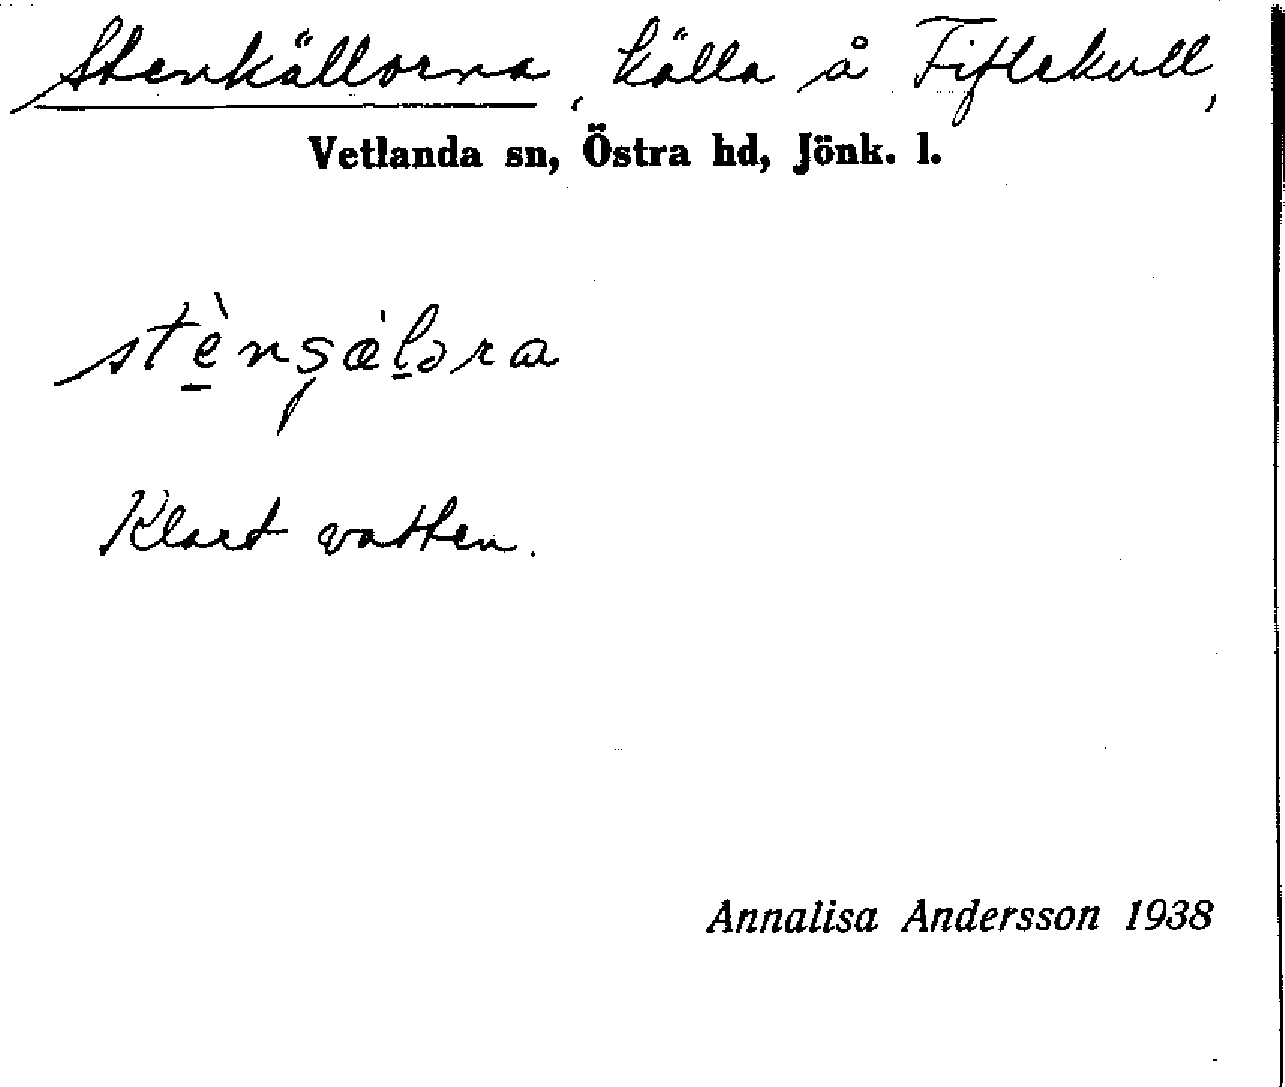 Stenkällorna, källa å Fiftekull,
Vetlanda sn, Östra hd, Jönk. l.
Klart vatten.
Annalisa Andersson 1938